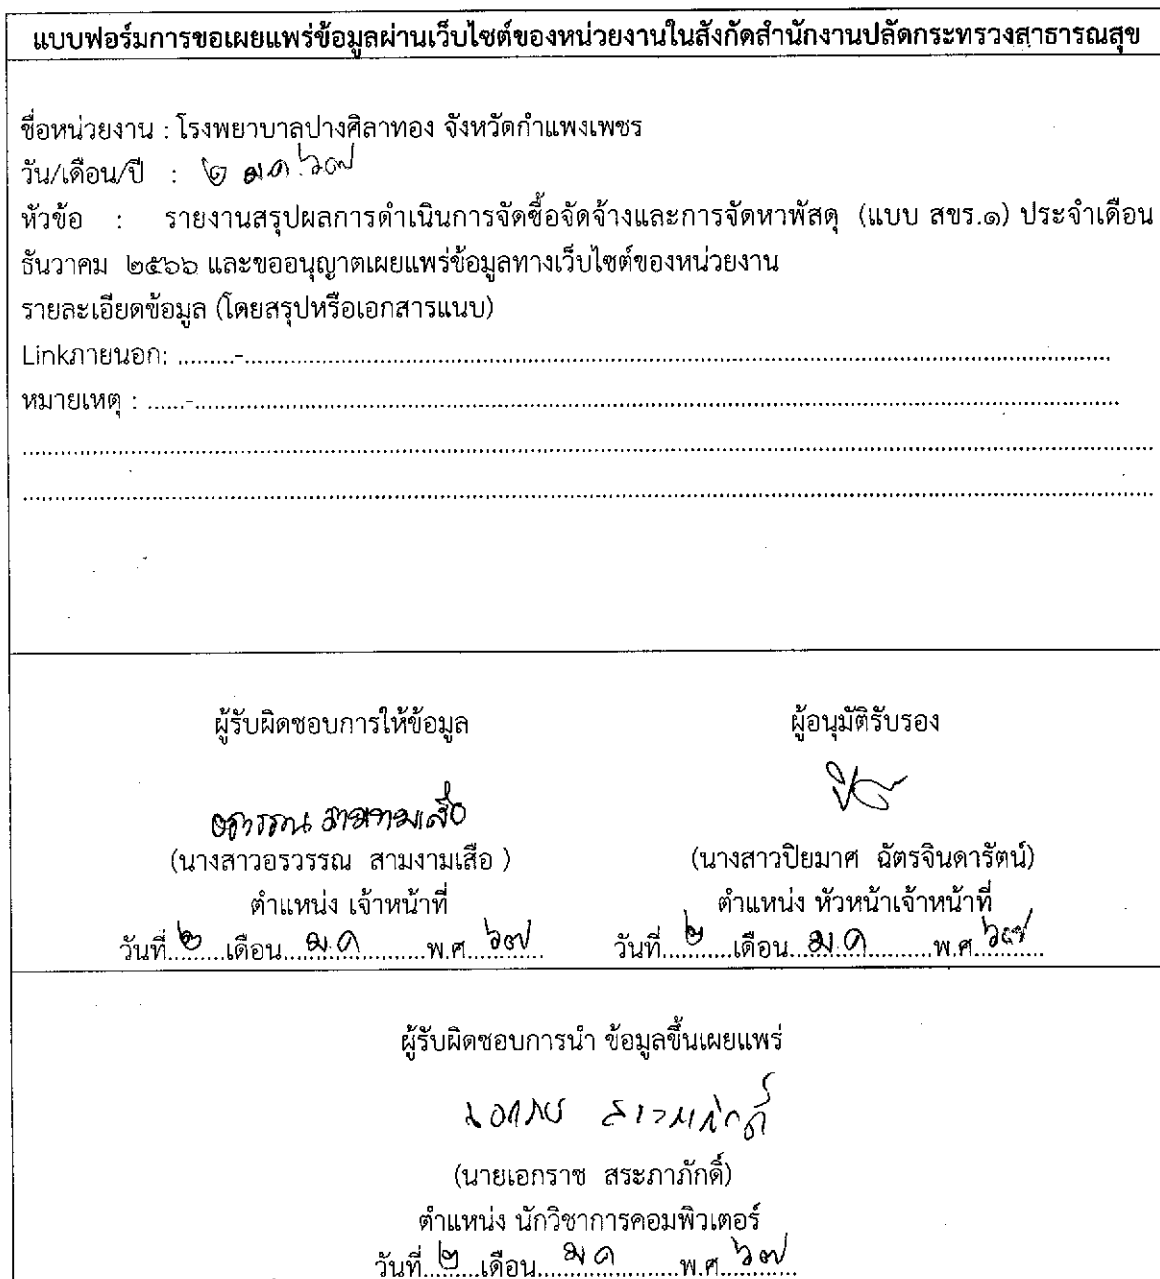 แบบฟอร์มการขอเผยแพร่ข้อมูลผ่านเว็บไซต์ของหน่วยงานในสังกัดสำนักงานปลัดกระทรวงสาธารณสุข
ชื่อหน่วยงาน : โรงพยาบาลปางศิลาทอง จังหวัดกำแพงเพชร
วัน/เดือน/ปี : ๒ ม.ค. ๖๗
หัวข้อ : รายงานสรุปผลการดำเนินการจัดซื้อจัดจ้างและการจัดหาพัสดุ (แบบ สขร.๑) ประจำเดือน
ธันวาคม ๒๕๖๖ และขออนุญาตเผยแพร่ข้อมูลทางเว็บไซต์ของหน่วยงาน
รายละเอียดข้อมูล (โดยสรุปหรือเอกสารแนบ)
Linkภายนอก: .........-.........
หมายเหตุ : ......-.........
ผู้รับผิดชอบการให้ข้อมูล
อรวรรณ สามงามเสือ
(นางสาวอรวรรณ สามงามเสือ )
ตำแหน่ง เจ้าหน้าที่
วันที่..๒..เดือน...ม.ค....พ.ศ...๖๗
ผู้อนุมัติรับรอง
(นางสาวปิยมาศ ฉัตรจินดารัตน์)
ตำแหน่ง หัวหน้าเจ้าหน้าที่
วันที่..๒..เดือน...ม.ค....พ.ศ...๖๗
ผู้รับผิดชอบการนำ ข้อมูลขึ้นเผยแพร่
เอกราช สระภาภักดิ์
(นายเอกราช สระภาภักดิ์)
ตำแหน่ง นักวิชาการคอมพิวเตอร์
วันที่..๒..เดือน...ม ค....พ.ศ...๖๗